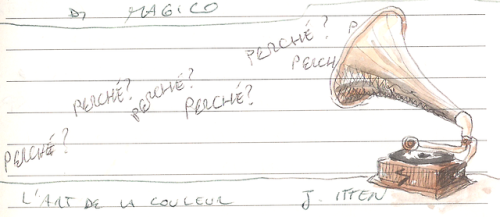 DI MAGICO
PERCHÉ? P
PERCH
PERCHÉ? PERCHÉ? PERCHÉ?
PERCHÉ?
L'ART DE LA COULEUR J. ITTEN